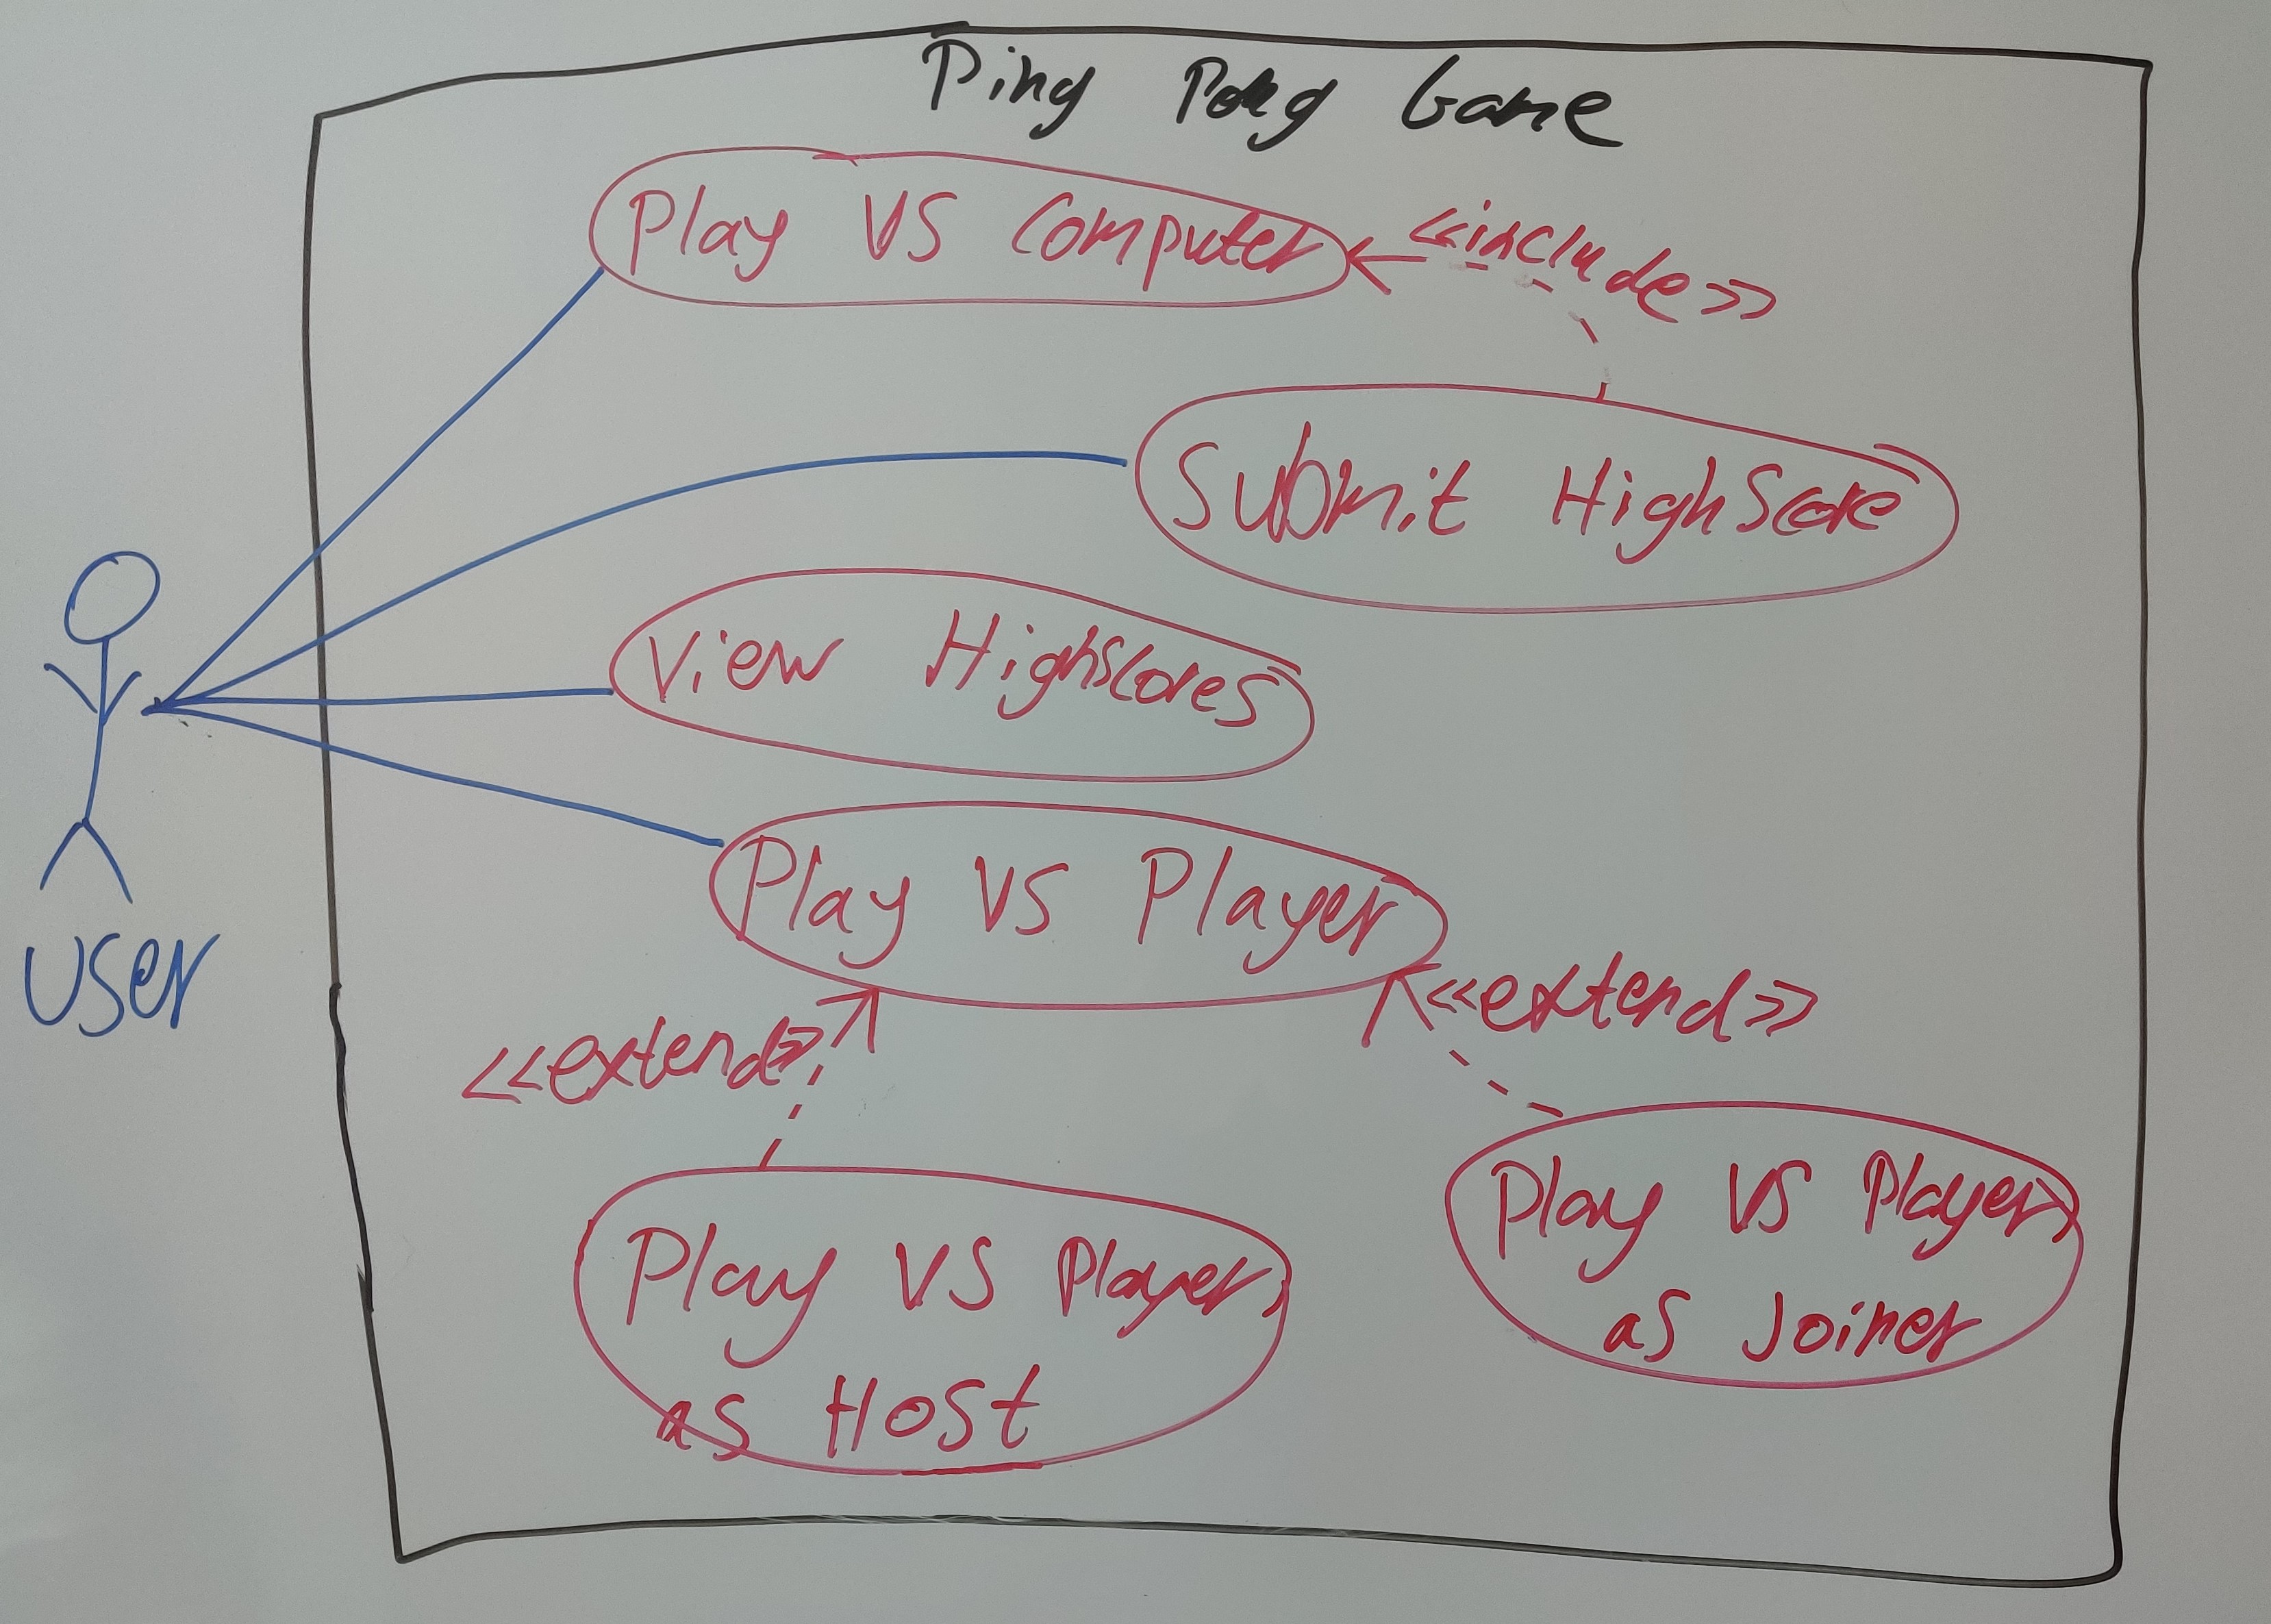 Ping Pong Game
Play VS Computer
<<include>>
Submit HighScore
View Highscores
Play VS Player
<<extend>>
<<extend>>
User
Play VS Player,
as Joiner
Play VS Player,
as Host